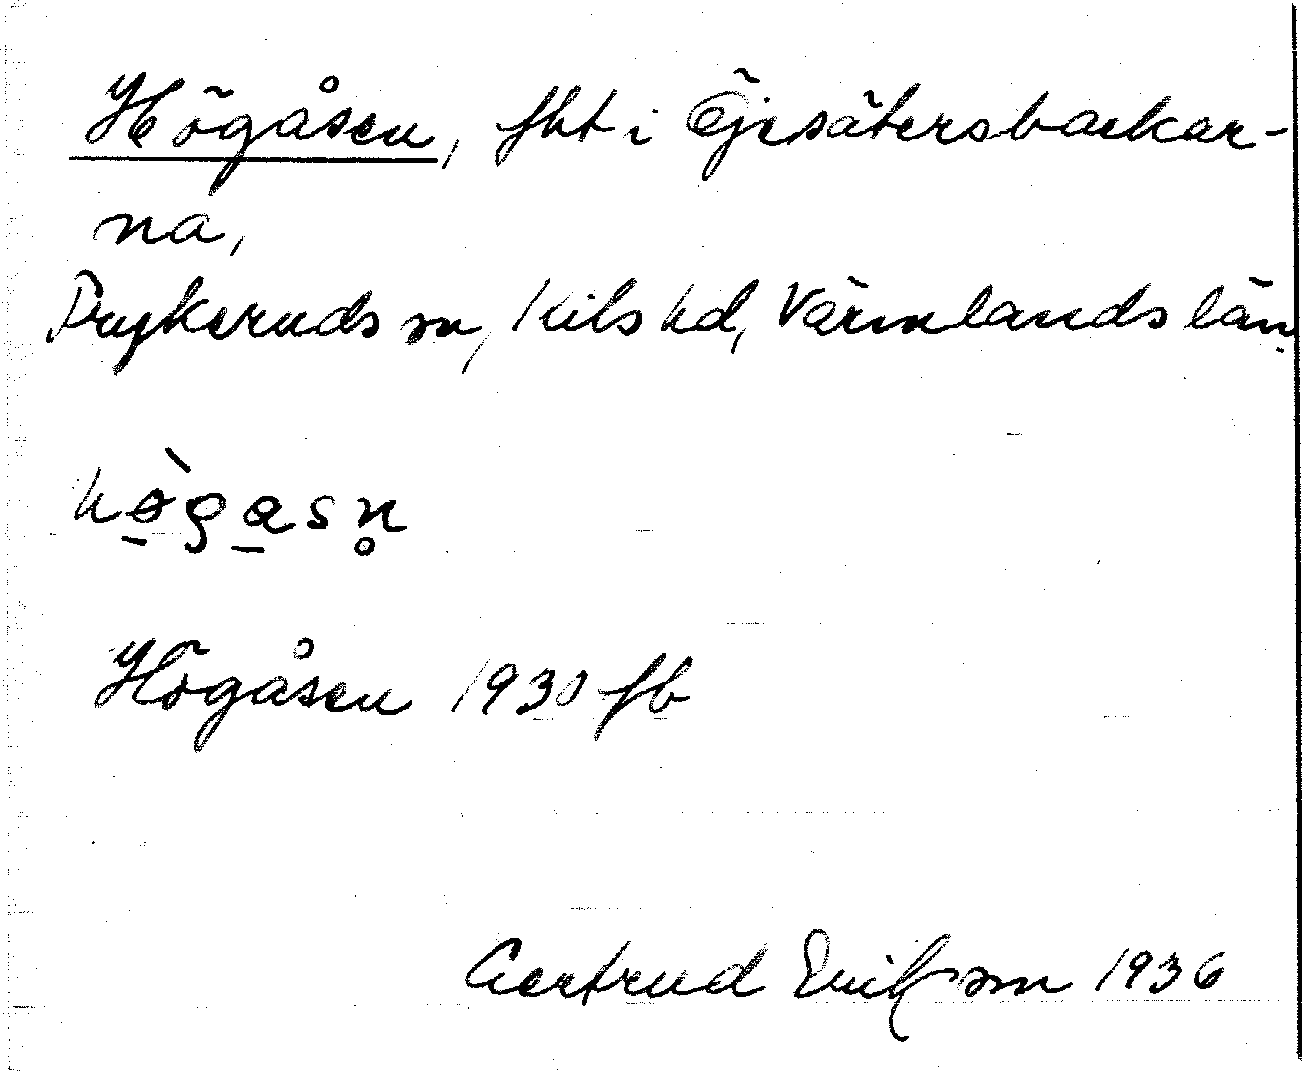 Högåsen, fht i Öjesätersbackar-
na,
Frykeruds sn, Kils hd, Värmlands län.
hø̀gasn̥
Högåsen 1930 fb
Gertrud Eriksson 1936